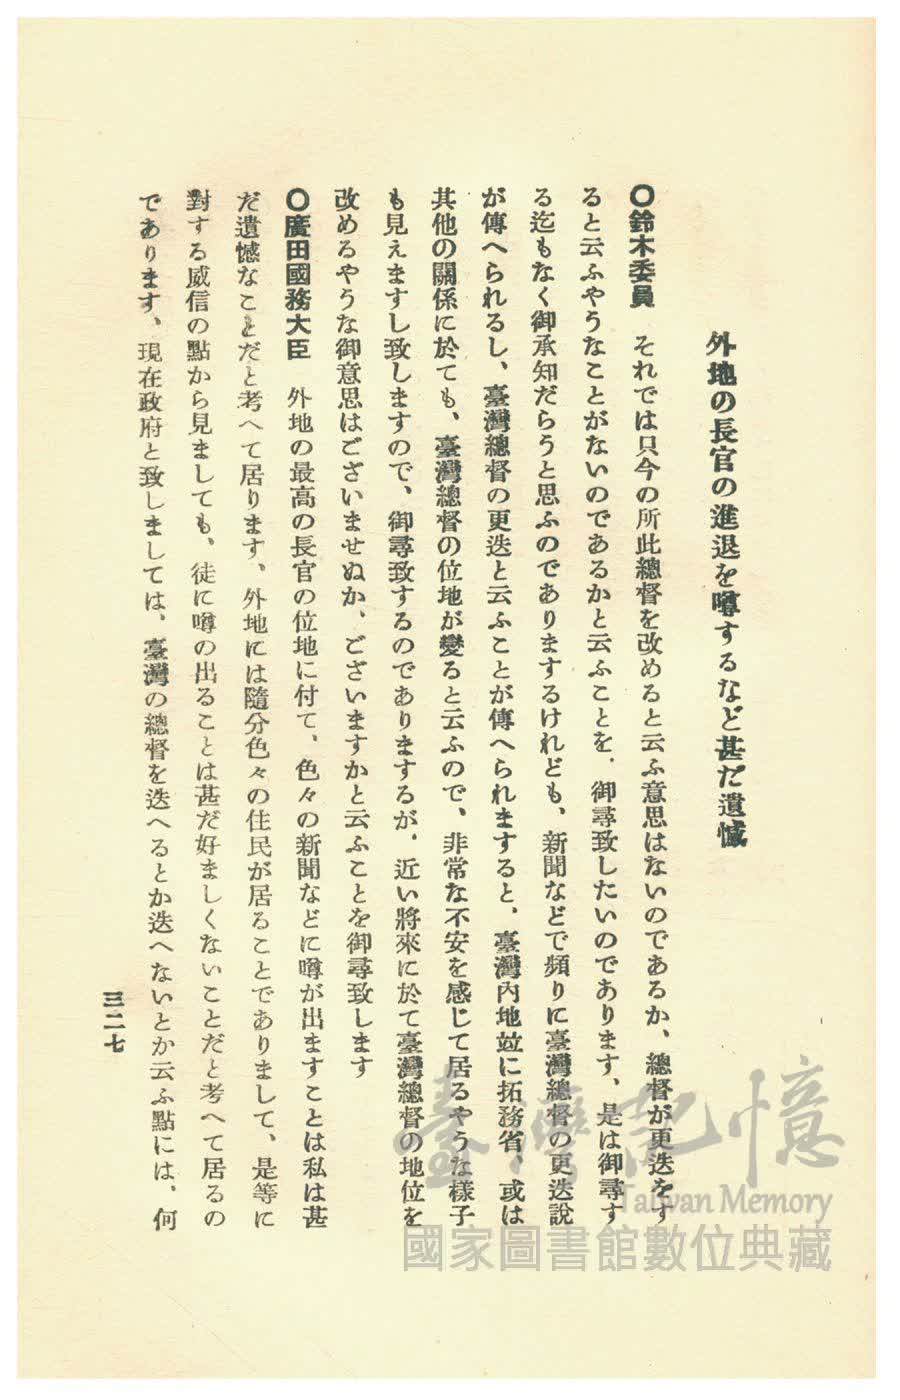 外地の長官の進退を噂するなど甚だ遺憾
〇鈴木委員　それでは只今の所此總督を改めると云ふ意思はないのであるか、總督が更迭をす
ると云ふやうなことがないのであるかと云ふことを、御尋致したいのであります、是は御尋す
る迄もなく御承知だらうと思ふのでありまするけれども、新聞などで頻りに臺灣總督の更迭說
が傳へられるし、臺灣總督の更迭と云ふことが傳へられますると、臺灣內地竝に拓務省、或は
其他の關係に於ても、臺灣總督の位地が變ると云ふので、非常な不安を感じて居るやうな樣子
も見えますし致しますので、御尋致するのでありまするが、近い將來に於て臺灣總督の地位を
改めるやうな御意思はございませぬか、ございますかと云ふことを御尋致します
〇廣田國務大臣　外地の最高の長官の位地に付て、色々の新聞などに噂が出ますことは私は甚
だ遺憾なことだと考へて居ります、外地には隨分色々の住民が居ることでありまして、是等に
對する威信の點から見ましても、徒に噂の出ることは甚だ好ましくないことだと考へて居るの
であります、現在政府と致しましては、臺灣の總督を迭へるとか迭へないとか云ふ點には、何
三二七
臺灣記憶
Taiwan Memory
國家圖書館數位典藏